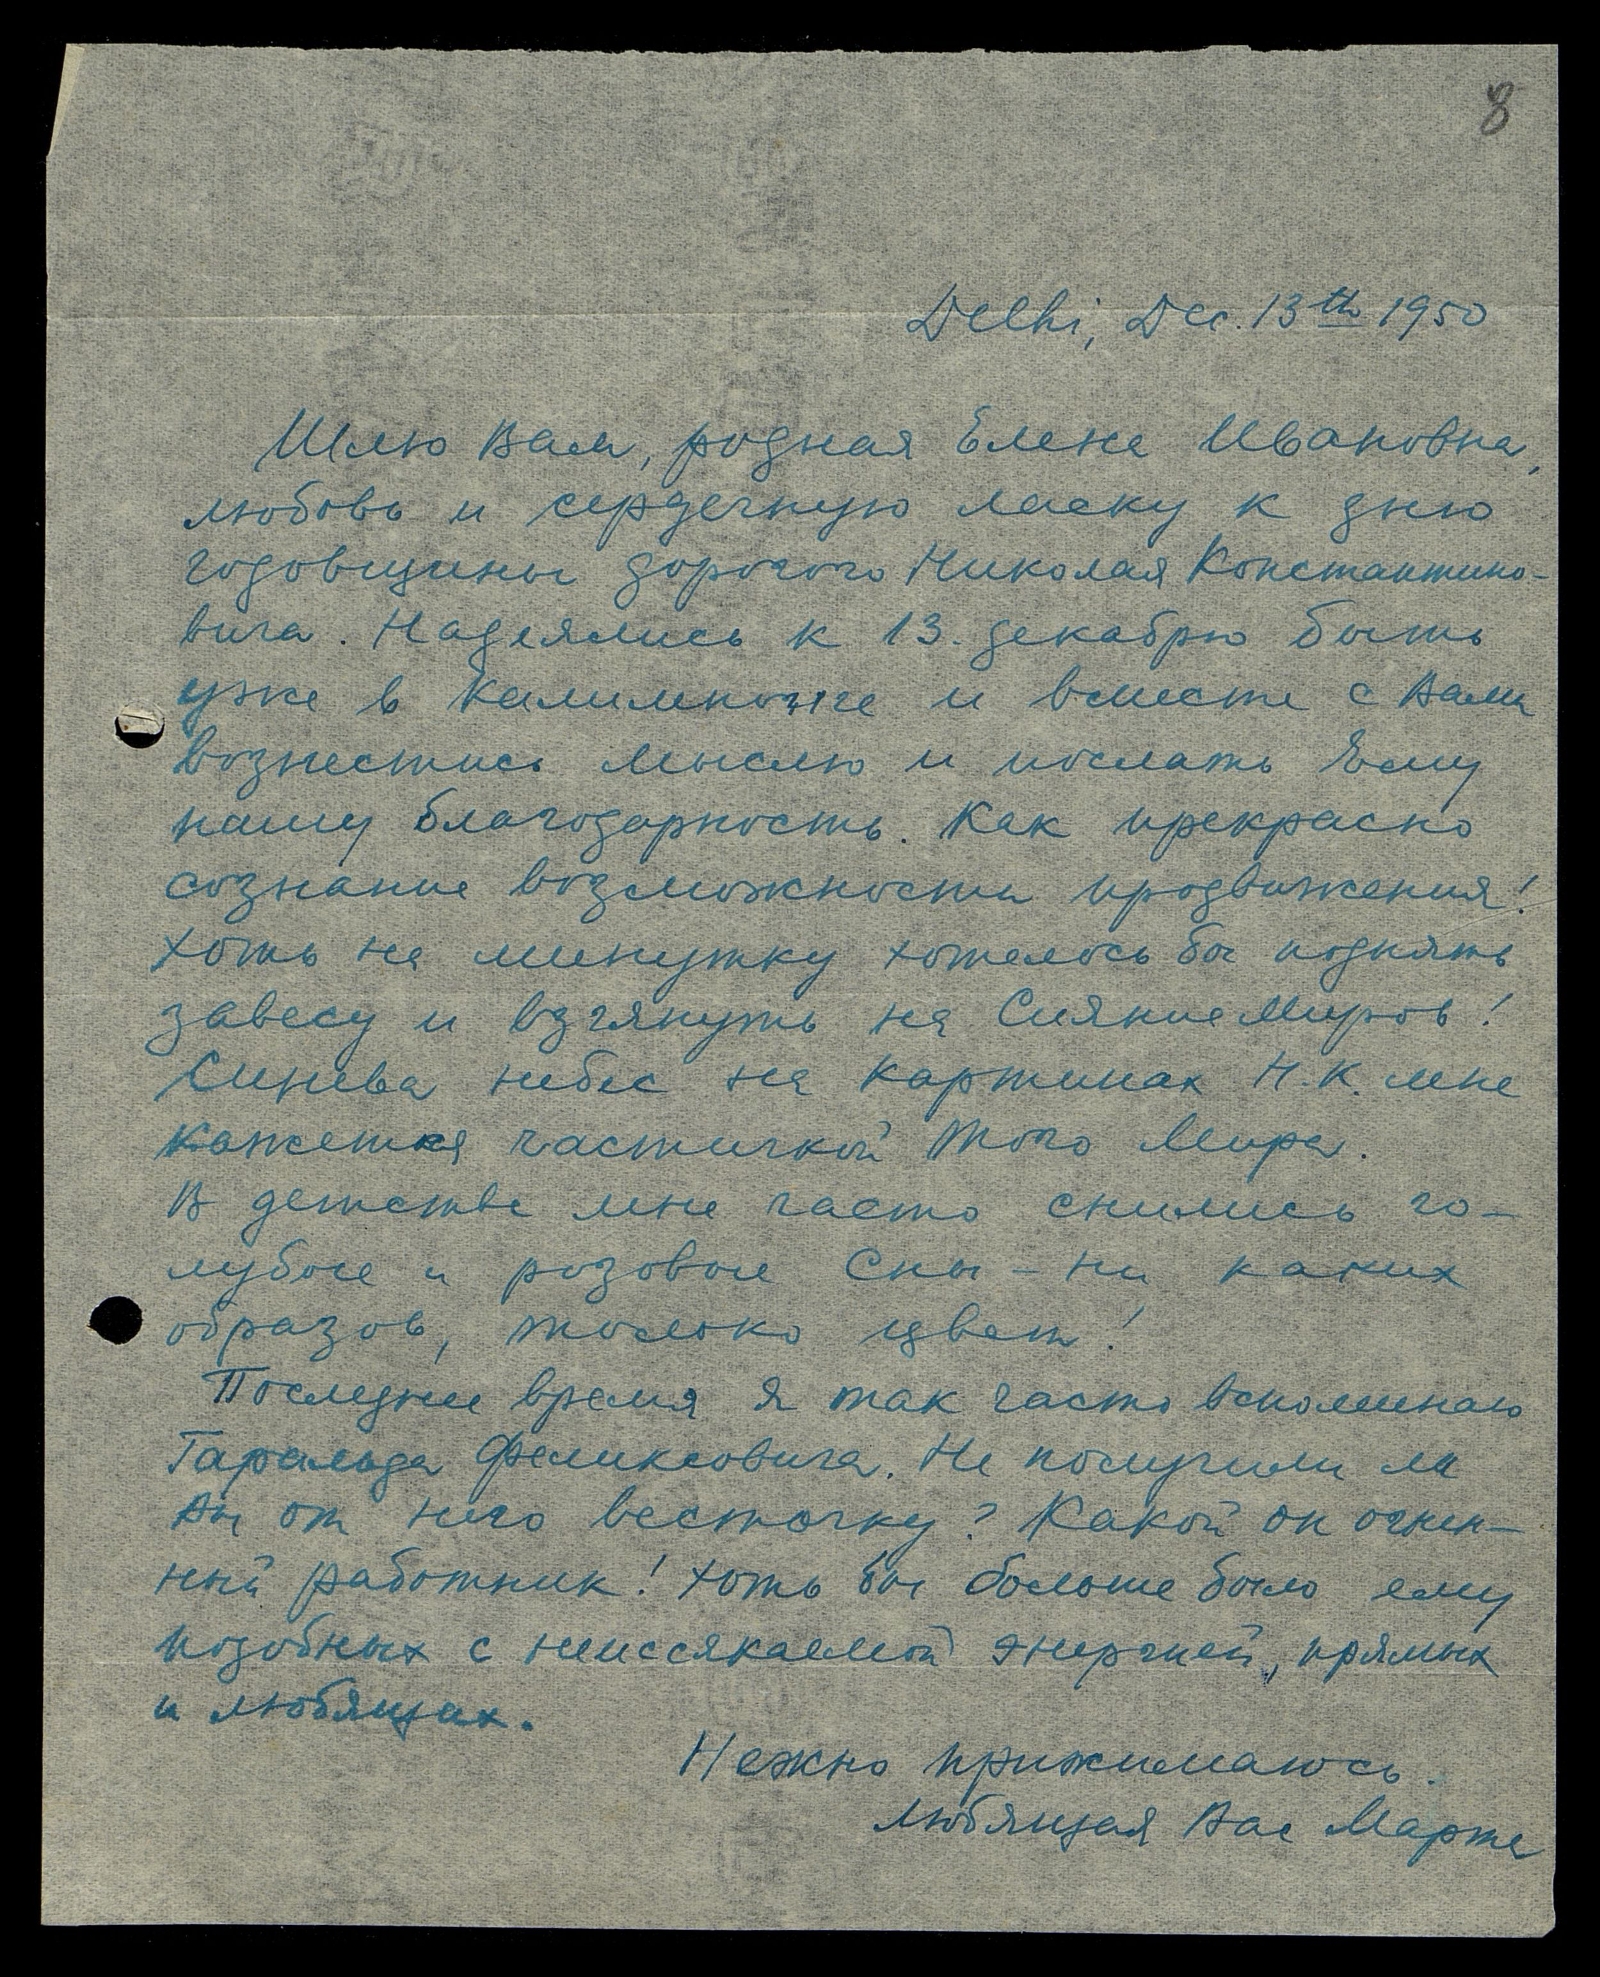 8
Delhi, Dec. 13th 1950
Шлю Вам, родная Елена Ивановна,
любовь и сердечную ласку к дню
годовщины дорогого Николая Константино-
вича. Надеялись к 13. декабрю быть
уже в Калимпонге и вместе с Вами
вознестись мыслю и послать Ему
нашу благодарность. Как прекрасно
сознание возможности продвижения!
Хоть на минутку хотелось бы поднять
завесу и взглянуть на Сияние Миров!
Синева небес на картинах Н.К. мне
кажется частичкой Того Мира.
В детстве мне часто снились го-
лубые и розовые Сны – ни каких
образов, только цвет!
Последнее время я так часто вспоминаю
Гаральда Феликсовича. Не получили ли
Вы от него весточку? Какой он огнен-
ный работник! Хоть бы больше было ему
подобных с неиссякаемой энергией, прямых
и любящих.
Нежно прижимаюсь.
Любящая Вас Марта